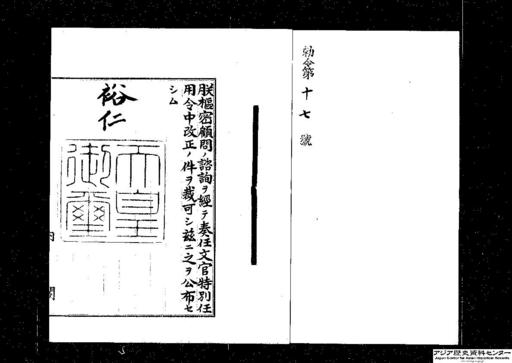 勅令第十七號
朕樞密顧問ノ諮詢ヲ經テ奏任文官特別任
用令中改正ノ件ヲ裁可シ玆ニ之ヲ公布セ
シム
裕仁
天皇
御璽
内閣
アジア歴史資料センター
Japan Center for Asian Historical Records